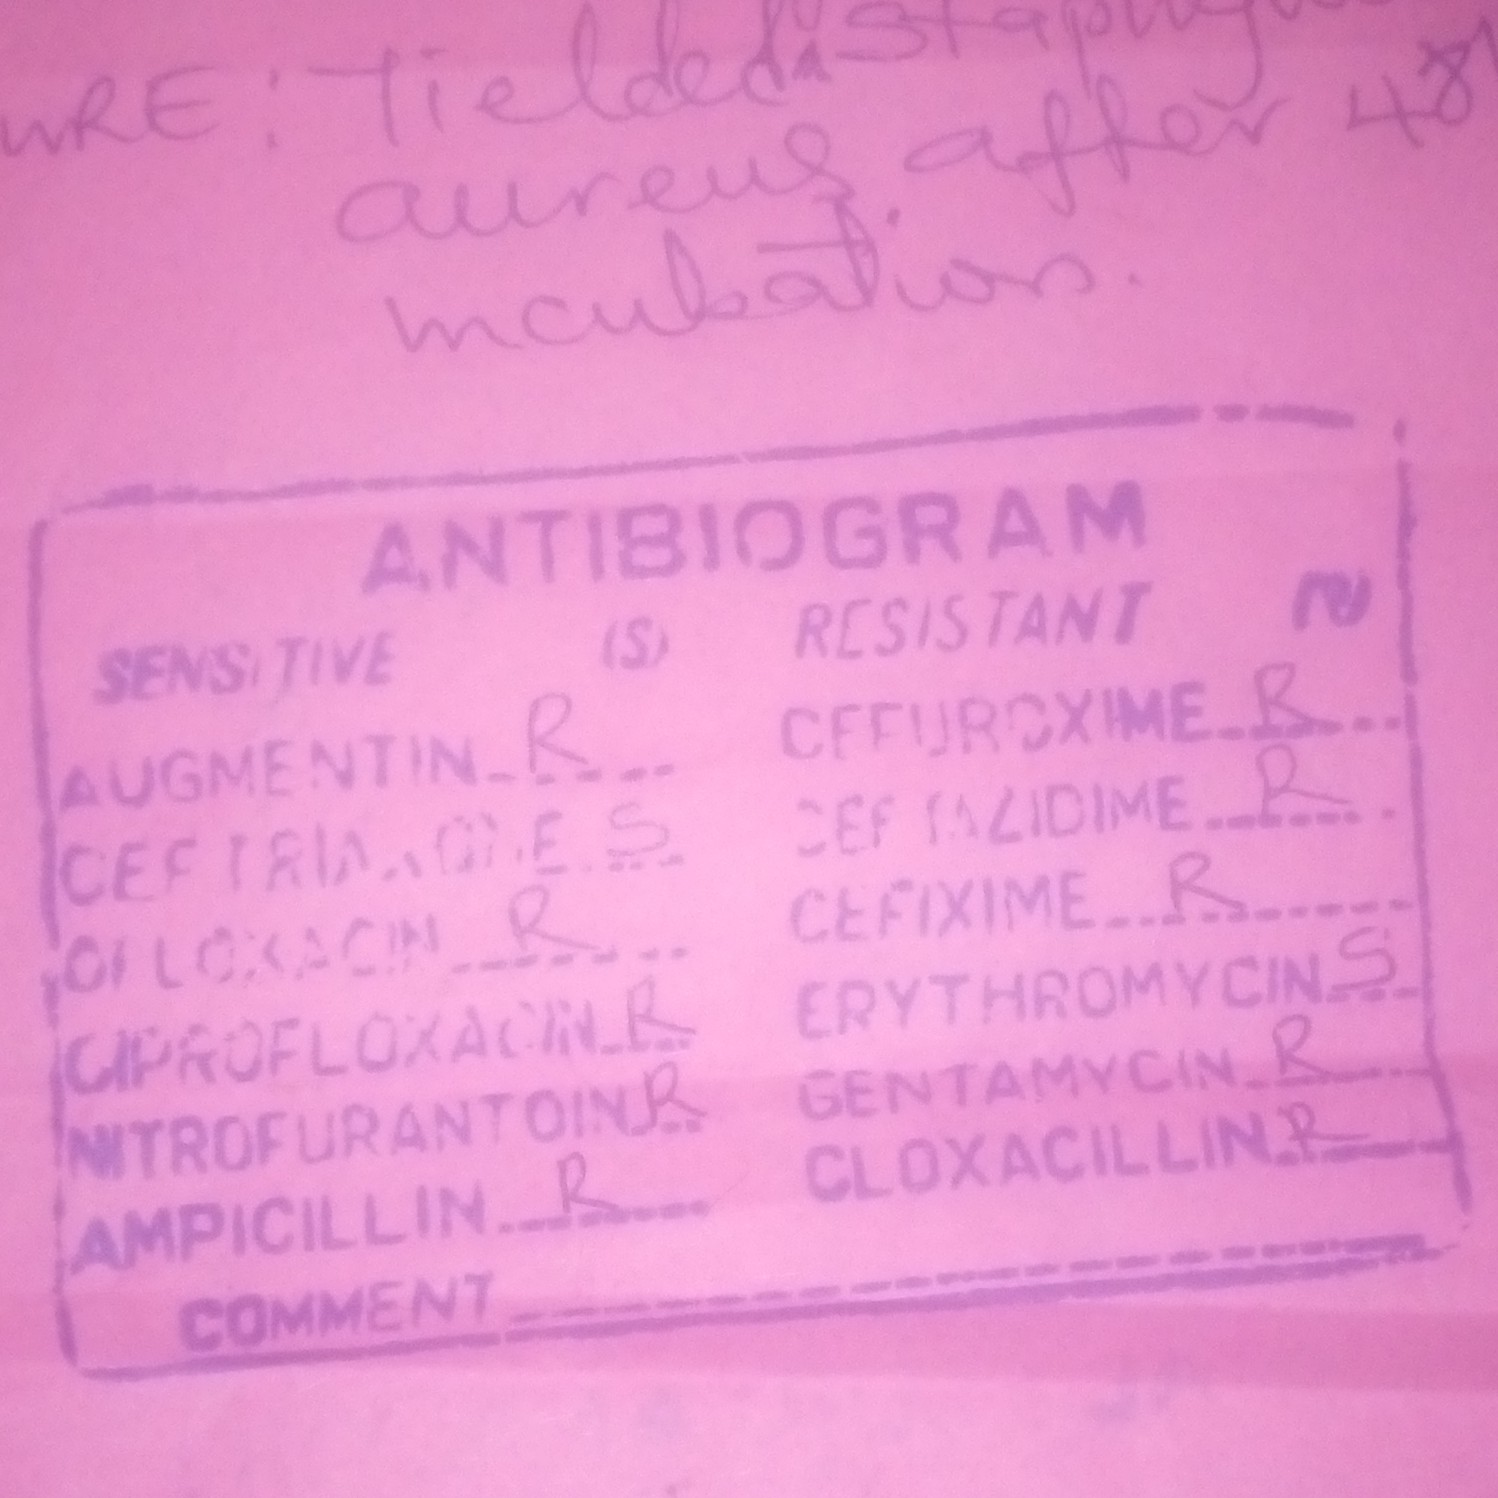 URE: Yielded Staphy
aureus after 48
incubation.
ANTIBIOGRAM
SENSITIVE (S) RESISTANT
AUGMENTIN R CEFUROXIME R
CEFTRIAXONE S CEFTAZIDIME R
OFLOXACIN R CEFIXIME R
CIPROFLOXACIN R ERYTHROMYCIN S
NITROFURANTOIN R GENTAMYCIN R
AMPICILLIN R CLOXACILLIN R
COMMENT